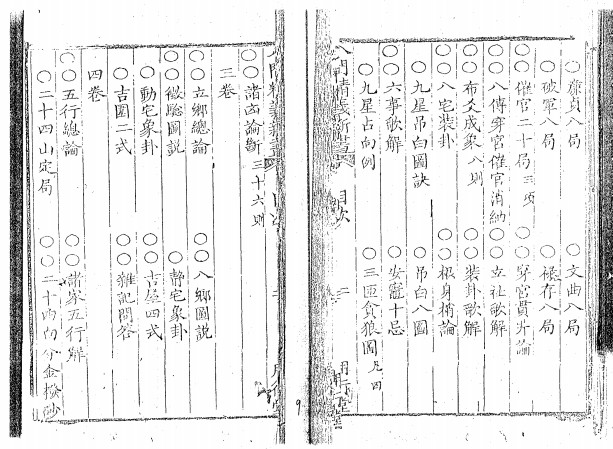 ○廉貞八局 ○文曲八局
○破軍八局 ○祿存八局
○催官二十局三項 ○穿宮貫井論
○八傳穿宮催官消納 ○立社歌解
○布爻成象八則 ○裝卦歌解
○八宅裝卦 ○根身稍論
○九星吊白圖訣 ○吊白八圖
○六事歌解 ○安竈十忌
○九星占向例 ○三匝貪狼圖
目次
○○諸凶論斷三十六則
三卷
○○立鄉總論 ○○八鄉圖說
○○微驗圖說 ○靜宅象卦
○動宅象卦 ○○吉屋四式
○吉圖二式 ○○雜記問答
四卷
○○五行總論 ○○諸家五行解
○二十四山定局 ○○二十四向分金撥砂
9